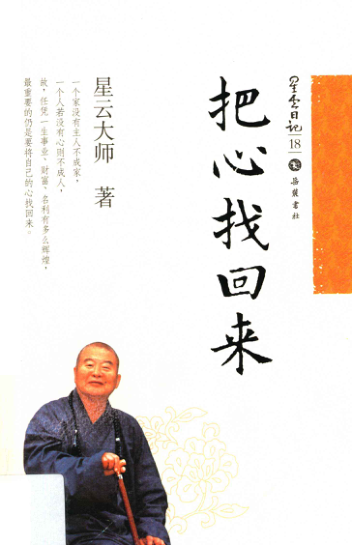 星云日记
18
岳麓书社
把心找回来
星云大师 著
一个家没有主人不成家，
一个人若没有心则不成人，
故，任凭一生事业、财富、名利有多么辉煌，
最重要的仍是要将自己的心找回来。